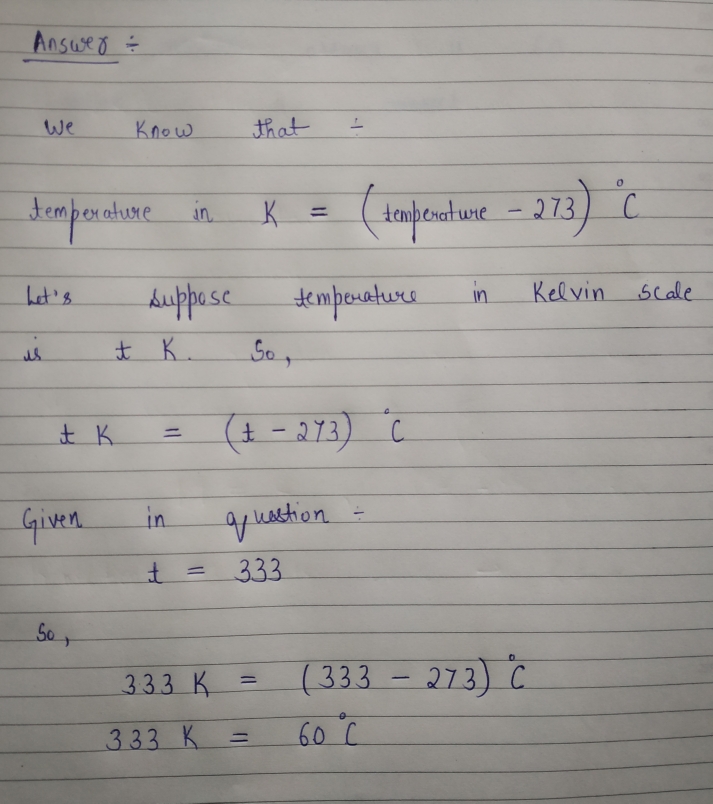 Answer ÷
We Know that ÷
temperature in K = (temperature - 273) °C
Let's suppose temperature in Kelvin scale
is t K. So,
t K = (t - 273) °C
Given in question ÷
t = 333
So,
333 K = (333 - 273) °C
333 K = 60 °C